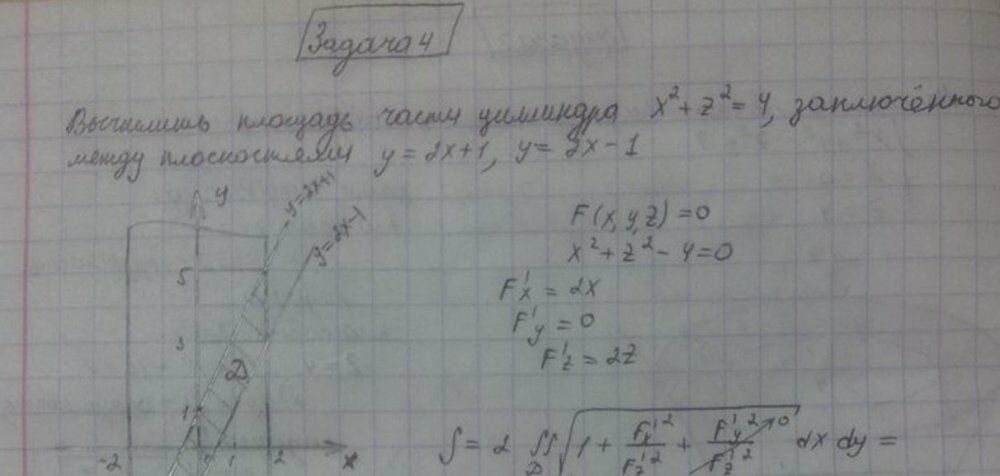 Задача 4
Вычислить площадь части цилиндра x² + z² = 4, заключённого
между плоскостями y = 2x+1, y = 2x − 1
y
y=2x+1
y=2x−1
F(x,y,z) = 0
x² + z² − 4 = 0
5
F'x = 2x
F'y = 0
3
F'z = 2z
D
1
S = 2 ∬D √(1 + F'x²/F'z² + F'y²/F'z² → 0) dx dy =
-2 0 1 2 x